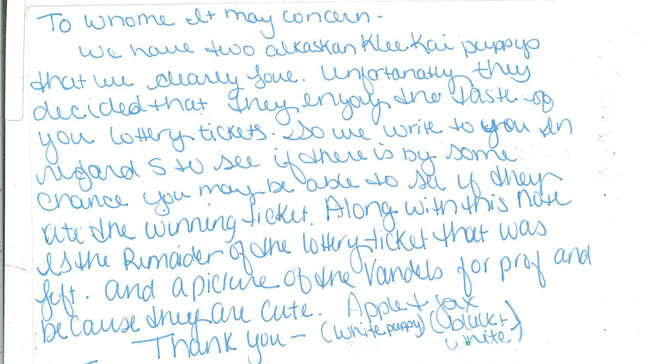 To whome it may concern -
We have two alkaskan Klee Kai puppys
that we dearly love. Unfortanatly they
decided that they enjoy the taste of
you lottery tickets. So we write to you in
regards to see if there is by some
chance you may be able to see if they
ate the winning ticket. Along with this note
is the Rimaider of the lottery ticket that was
left. and a picture of the Vandels for prof and
because they are cute. Apple + Jax
Thank you - (white puppy) (black +
white)